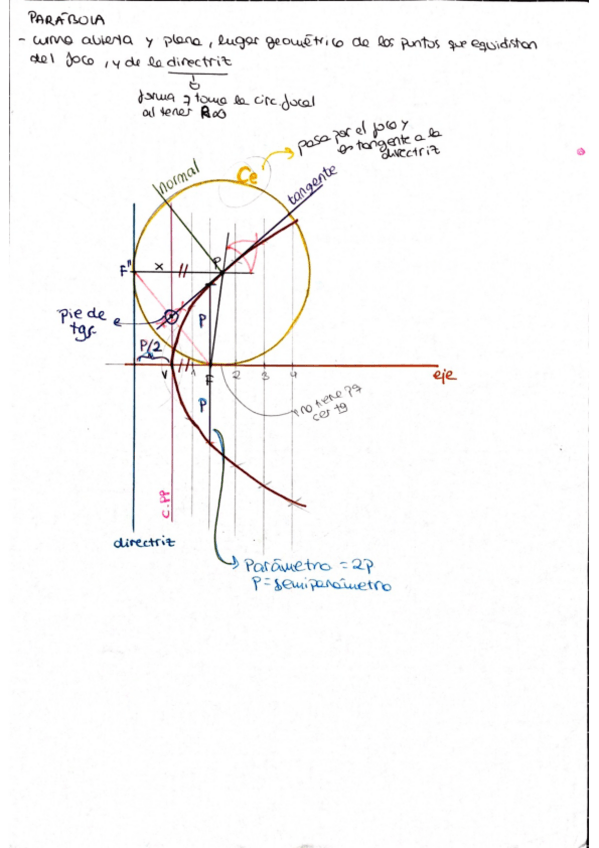 PARÁBOLA
- curva abierta y plana, lugar geométrico de los puntos que equidistan
del foco, y de la directriz
forma q toma la circ. focal
al tener R∞
pasa por el foco y
es tangente a la
directriz
normal
Ce
tangente
F'' x // P
Pie de
tgs. e
P
P/2
V // 1 F 2 3 4
eje
P
no tiene pq
ser tg
C.PP
directriz
Parámetro = 2P
P = semiparámetro